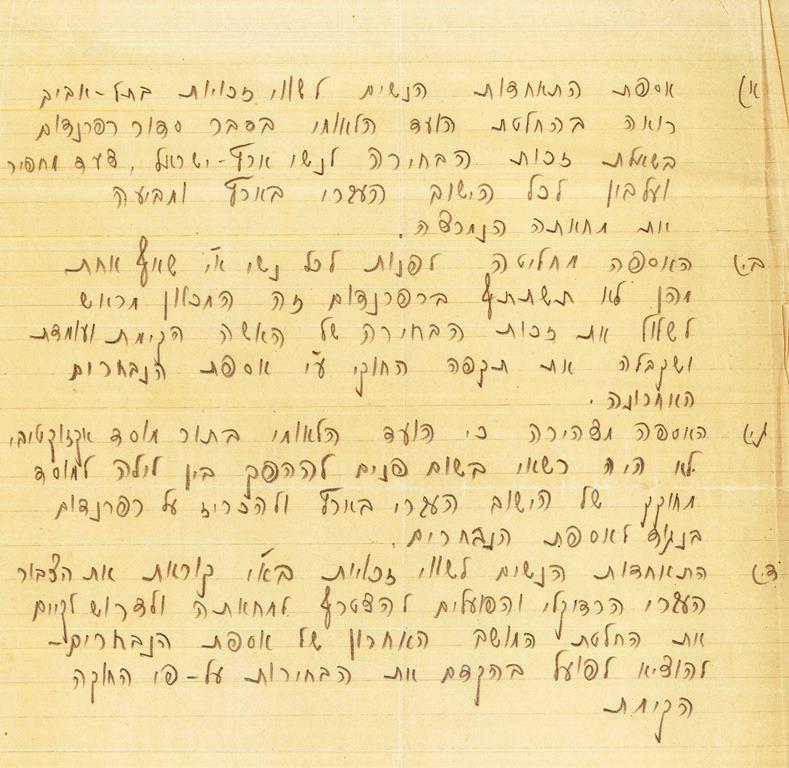 א.) אספת התאחדות הנשים לשווי זכויות בתל-אביב
רואה בהחלטת הועד הלאומי בדבר סדור רפרנדום
בשאלת זכות הבחירה לנשי ארץ-ישראל, צעד מחפיר
ועלבון לכל הישוב העברי בארץ ומביעה
את מחאתה הנמרצה.
ב.) האספה מחליטה לפנות לכל נשי א"י שאף אחת
מהן לא תשתתף ברפרנדום זה המכוון מראש
לשלול את זכות הבחירה של האשה הקימת ועומדת
ושקבלה את תקפה החוקי ע"י אספת הנבחרים
האחרונה.
ג.) האספה מצהירה כי הועד הלאומי בתור מוסד אקזקוטיבי
לא היה רשאי בשום פנים לההפך בין לילה למוסד
מחוקק של הישוב העברי בארץ ולהכריז על רפרנדום
בנגוד לאספת הנבחרים.
ד.) התאחדות הנשים לשווי זכויות בא"י קוראת את הצבור
העברי הרדיקלי והפועלים להצטרף למחאתה ולדרוש לקיים
את החלטת המושב האחרון של אספת הנבחרים-
להוציא לפועל בהקדם את הבחירות על-פי החוקה
הקימת